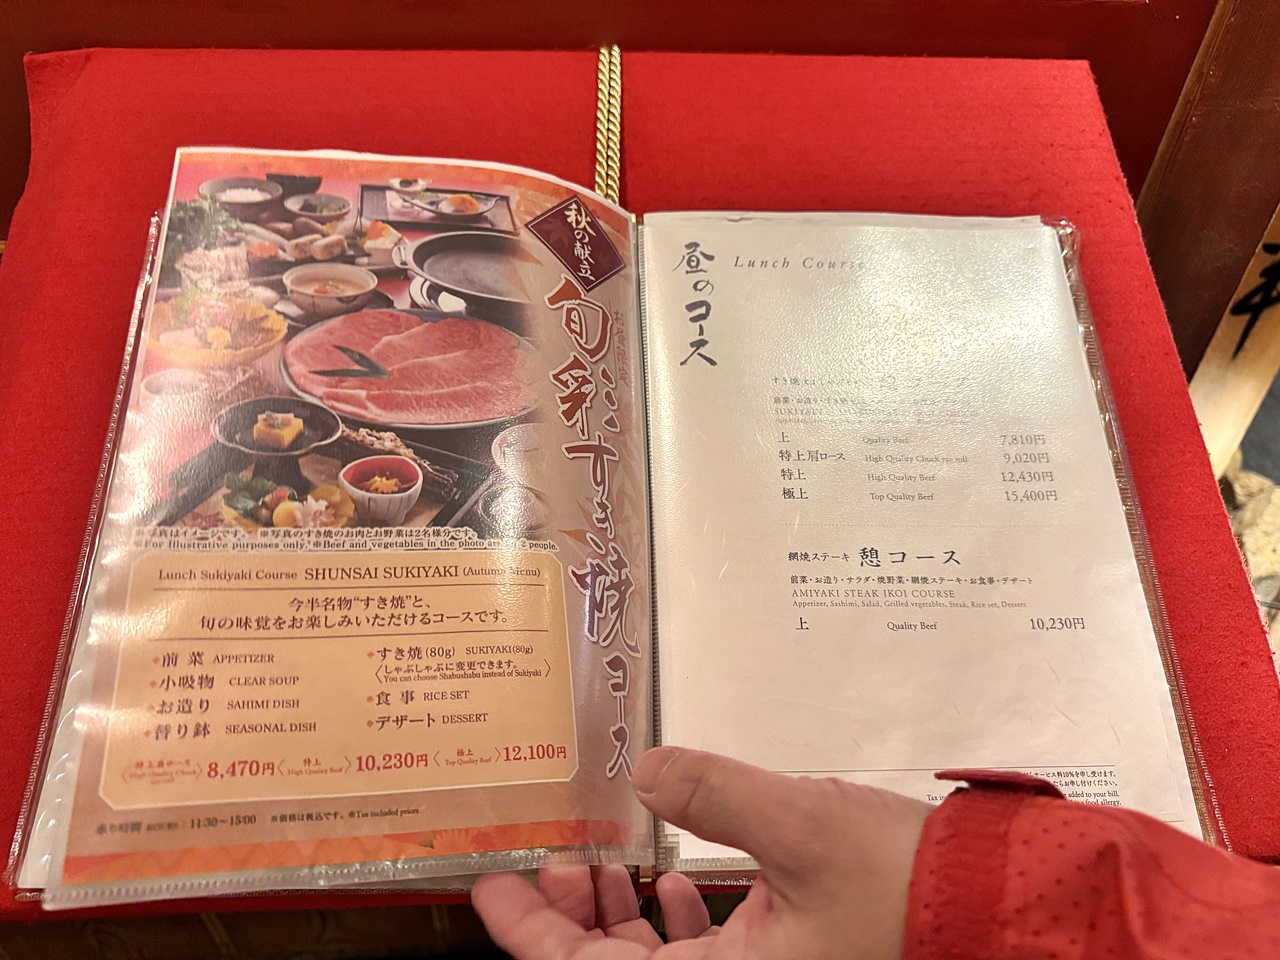 秋の献立
旬彩すき焼コース
※写真はイメージです。 ※写真のすき焼のお肉とお野菜は2名様分です。
※For Illustrative purposes only. ※Beef and vegetables in the photo are for 2 people.
Lunch Sukiyaki Course SHUNSAI SUKIYAKI (Autumn Menu)
今半名物“すき焼”と、
旬の味覚をお楽しみいただけるコースです。
前菜 APPETIZER
小吸物 CLEAR SOUP
お造り SAHIMI DISH
替り鉢 SEASONAL DISH
すき焼(80g) SUKIYAKI(80g)
〈しゃぶしゃぶに変更できます。
You can choose Shabushabu instead of Sukiyaki〉
食事 RICE SET
デザート DESSERT
〈特上肩ロース High Quality Chuck〉 8,470円 〈特上 High Quality Beef〉 10,230円 〈極上 Top Quality Beef〉 12,100円
11:30～15:00 ※価格は税込です。※Tax included prices.
昼のコース
Lunch Course
すき焼
前菜・お造り・すき焼
上 Quality Beef 7,810円
特上肩ロース High Quality Chuck eye roll 9,020円
特上 High Quality Beef 12,430円
極上 Top Quality Beef 15,400円
網焼ステーキ 憩コース
前菜・お造り・サラダ・焼野菜・網焼ステーキ・お食事・デザート
AMIYAKI STEAK IKOI COURSE
Appetizer, Sashimi, Salad, Grilled vegetables, Steak, Rice set, Dessert
上 Quality Beef 10,230円
サービス料10%を申し受けます。
お申し付けください。
Tax in
be added to your bill.
a food allergy.